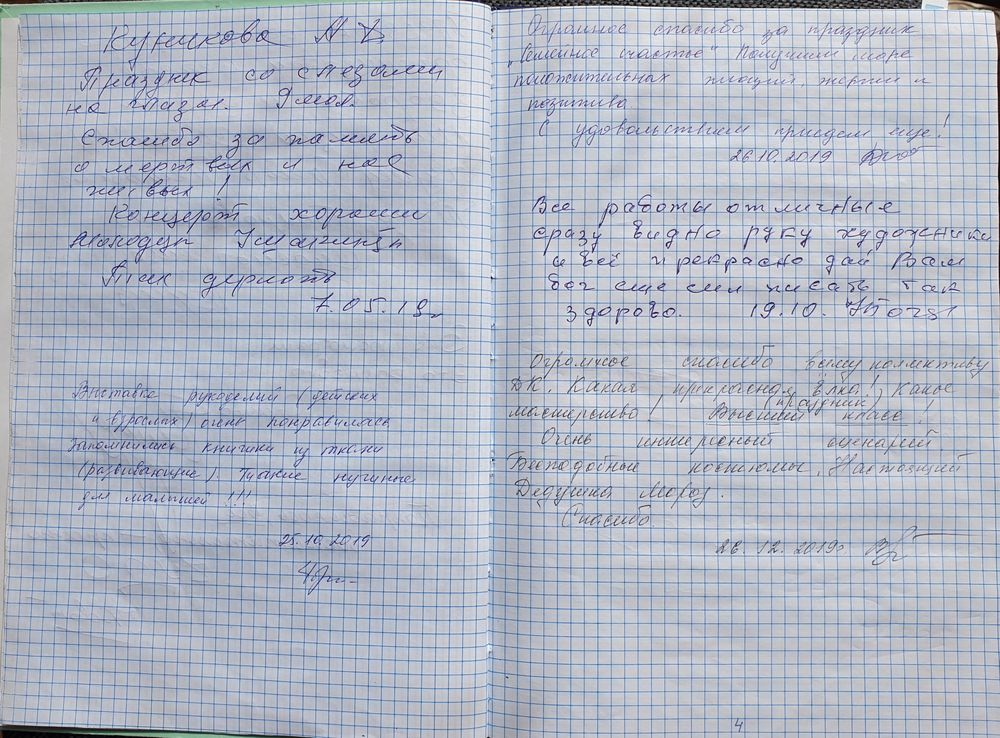 Куникова А
Праздник со слезами
на глазах. 9 мая.
Спасибо за память
о мертвых и нас
живых!
Концерт хороши
Молодцы
Так держать
7.05.19г
Выставка рукоделий (детских
и взрослых) очень понравилась
Запомнились книжки из ткани
(развивающие). Такие нужные
для малышей!!!
25.10.2019
Огромное спасибо за праздник
„Семейное счастье" Получили море
положительных эмоций, энергии и
позитива
С удовольствием придем еще!
26.10.2019
Все работы отличные
сразу видно руку художника
и всё прекрасно дай Вам
бог еще сил писать так
здорово. 19.10.
Огромное спасибо всему коллективу
ДК. Какая прекрасная ёлка! Какое
(праздник)
мастерство! Высший класс!
Очень интересный сценарий
Бесподобные костюмы. Настоящий
Дедушка Мороз.
Спасибо
26.12.2019г
4